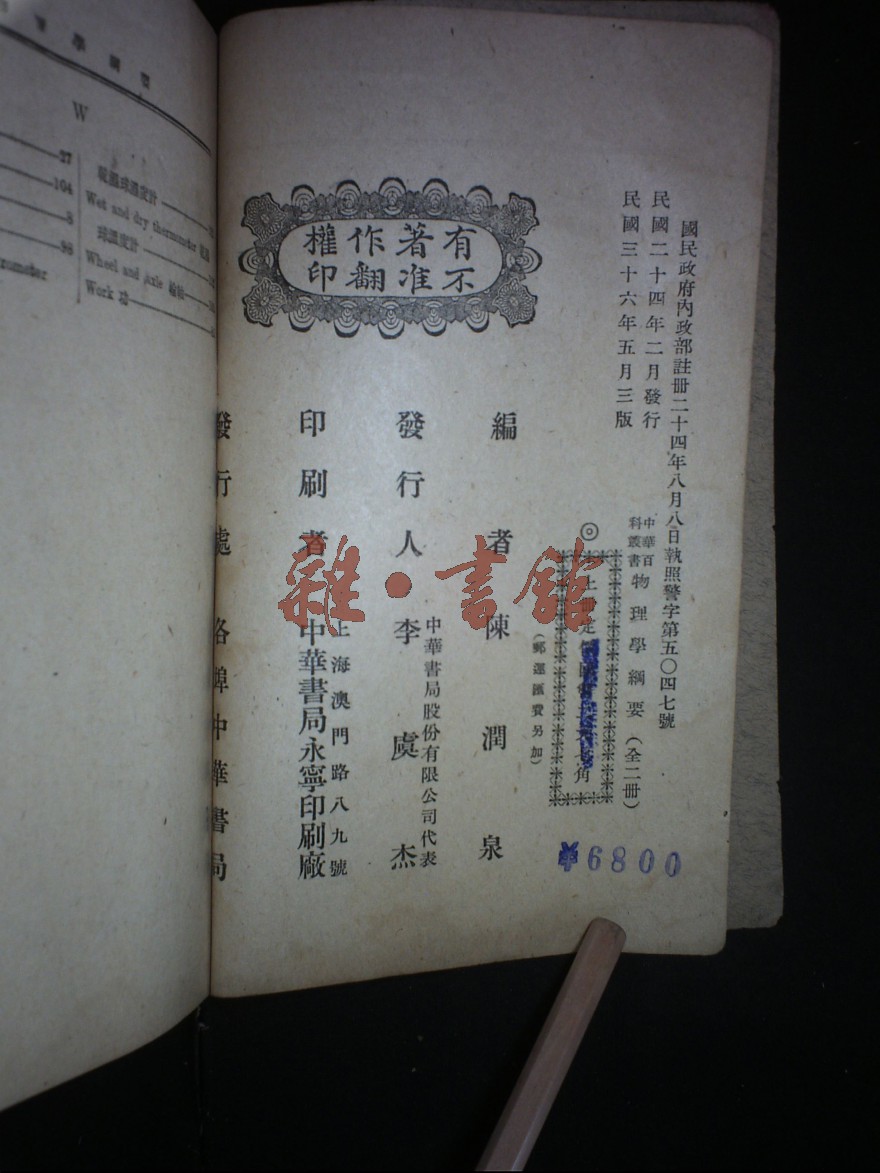 國民政府內政部註冊二十四年八月八日執照警字第五〇四七號
民國二十四年二月發行
民國三十六年五月三版
中華百科叢書 物理學綱要（全二冊）
◎上冊定
角
（郵運匯費另加）
¥6800
編者 陳潤泉
發行人 李虞杰
中華書局股份有限公司代表
印刷者 中華書局永寧印刷廠
上海澳門路八九號
發行處 各埠中華書局
有著作權
不准翻印
雜·書館
W
27
104
8
98
乾濕球溫度計
Wet and dry thermometer
球溫度計
Wheel and Axle 輪軸
Work 功